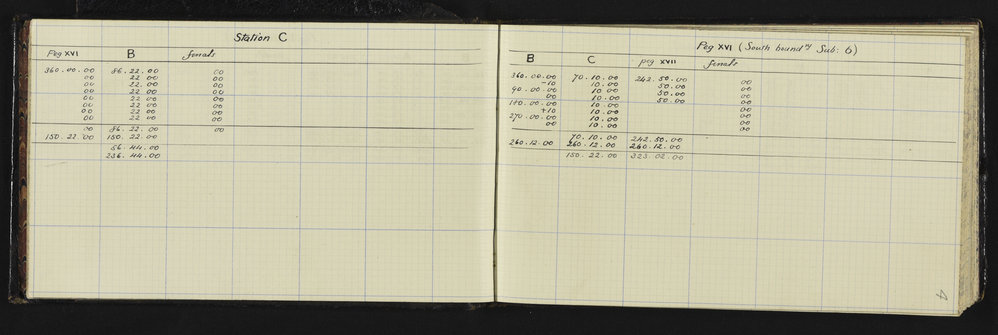 Station C
Peg XVI B finals
360.00.00 86.22.00 00
00 22 00 00
00 22.00 00
00 22 00 00
00 22 00 00
00 22 00 00
00 22 00 00
00 22 00 00
00 86.22 00 00
150.22.00 150.22 00
86.44.00
236.44.00
Peg XVI (South boundy Sub: 6)
B C peg XVII finals
360.00.00 70.10.00 242.50.00 00
-10 10.00 50.00 00
90.00.00 10.00 50.00 00
00 10.00 50.00 00
180.00.00 10.00 00
+10 10.00 00
270.00.00 10.00 00
00 10.00 00
70.10.00 242.50.00
260.12.00 260.12.00 260.12.00
150.22.00 323.02.00
4